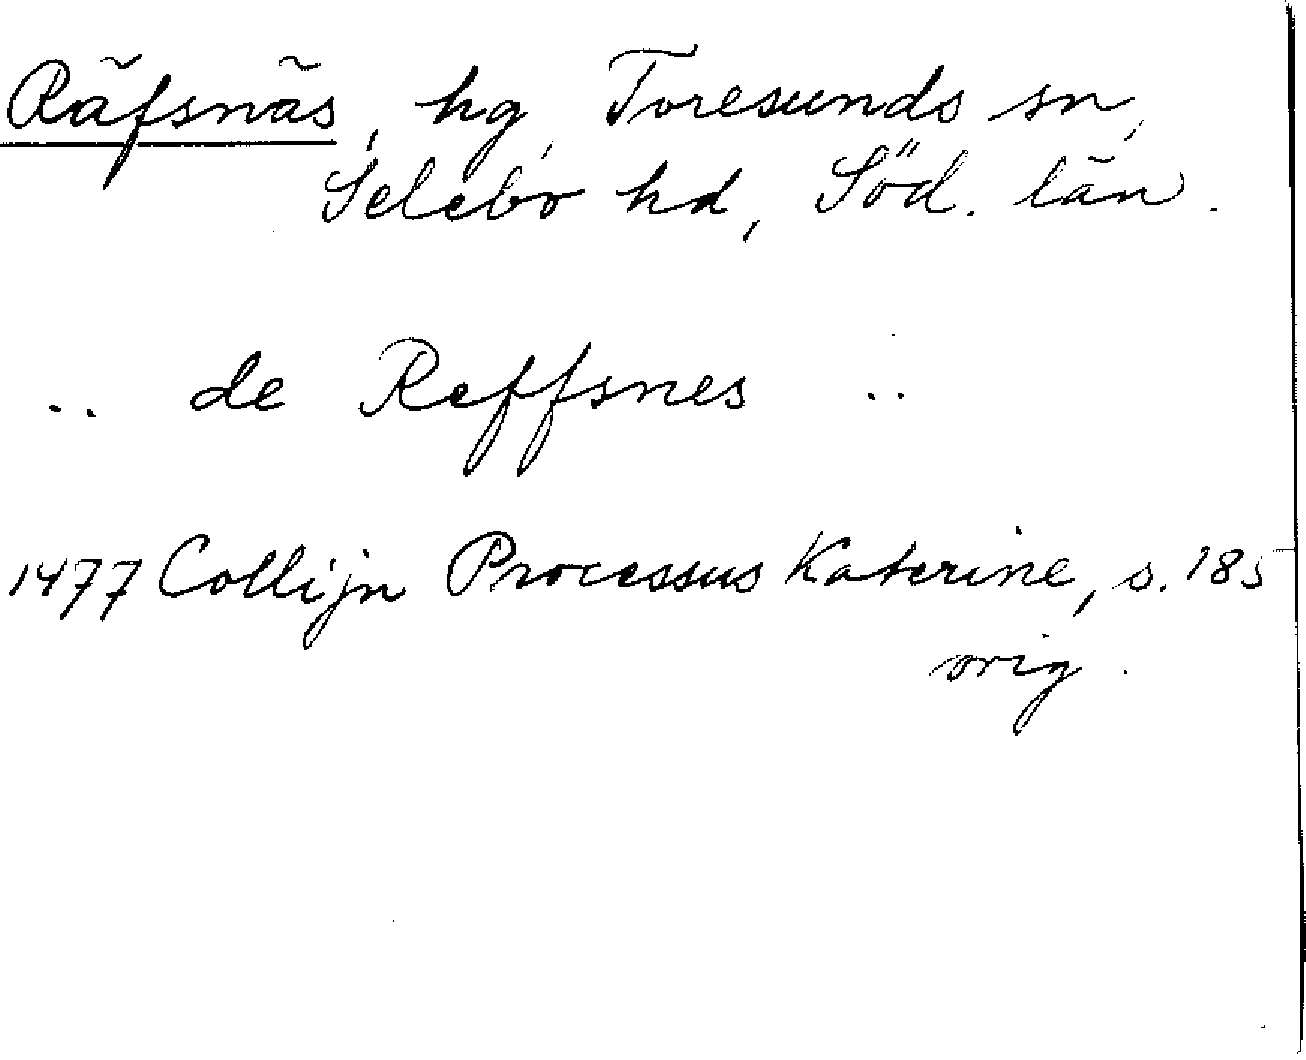 Räfsnäs, hg, Toresunds sn,
Selebo hd, Söd. län.
.. de Reffsnes ..
1477 Collijn Processus Katerine, s. 185
orig.